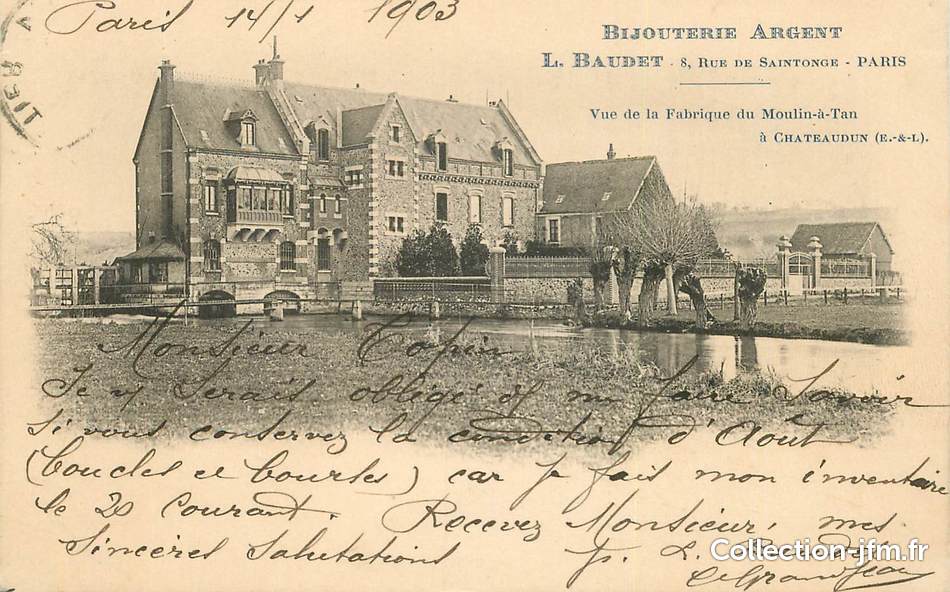 Paris 14/1 1903
BIJOUTERIE ARGENT
L. BAUDET - 8, RUE DE SAINTONGE - PARIS
Vue de la Fabrique du Moulin-à-Tan
à CHATEAUDUN (E.-&-L.).
Monsieur Copin
Je v Serais obligé de me faire Savoir
Si vous conservez la condition d'Août
(boucles et bourses) car je fais mon inventaire
le 20 courant. Recevez Monsieur, mes
Sincères Salutations
p. L. Baudet
Collection-jfm.fr